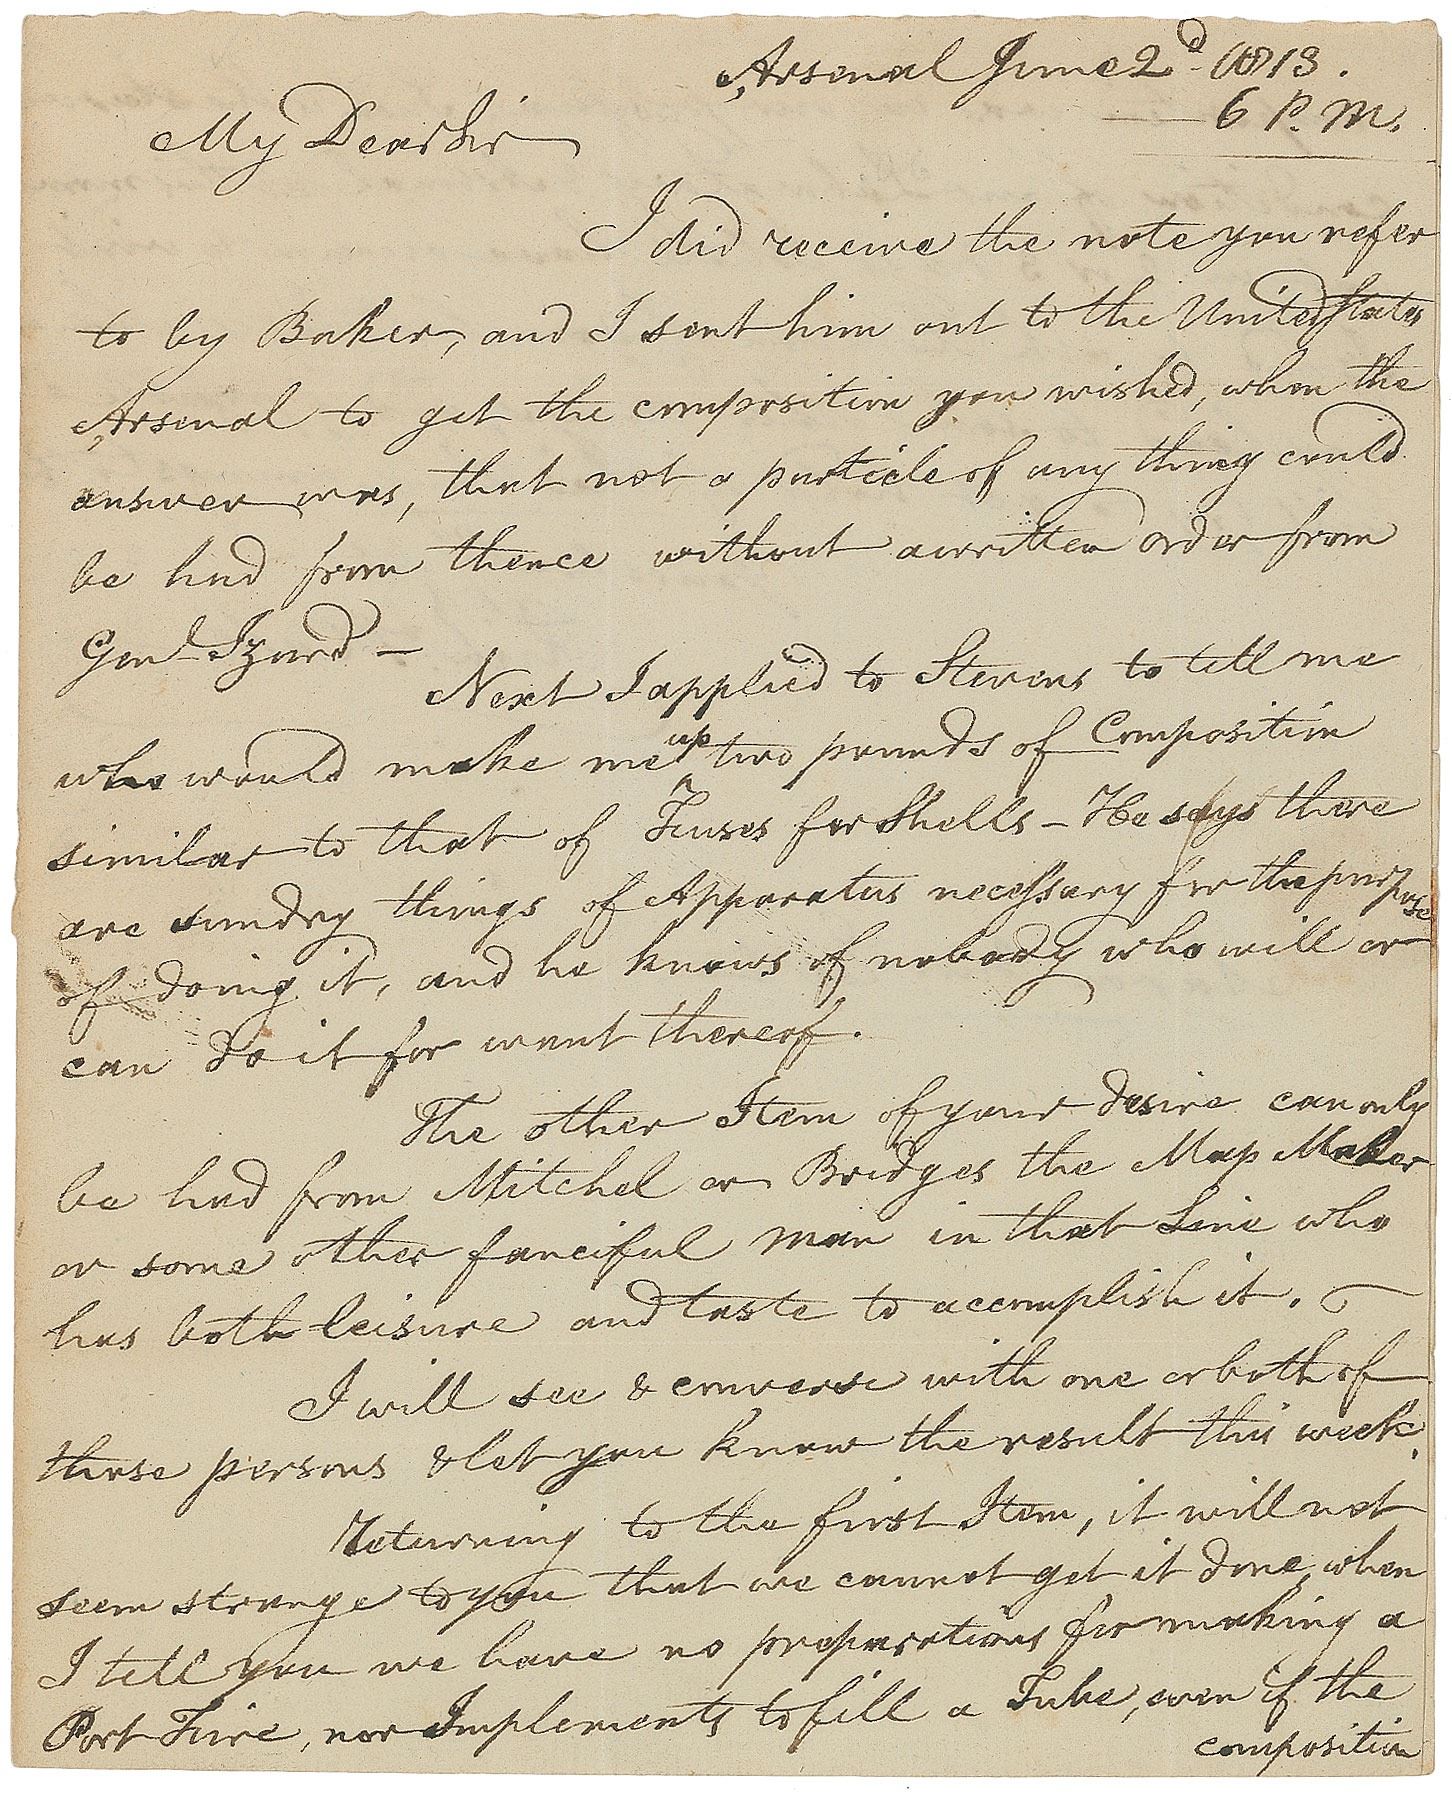 Arsenal June 2d 1813.
6 P. M.
My Dear Sir
I did receive the note you refer
to by Baker, and I sent him out to the United States
Arsenal to get the composition you wished, when the
answer was, that not a particle of any thing could
be had from thence without a written order from
Genl Izard —
Next I applied to Stevens to tell me
who would make me up two pounds of Composition
similar to that of Fuses for Shells – He says there
are sundry things of Apparatus necessary for the purpose
of doing it, and he knows of nobody who will or
can do it for want thereof.
The other Item of your desire can only
be had from Mitchel or Bridges the Map Maker
or some other fanciful man in that Line who
has both leisure and taste to accomplish it.
I will see & converse with one or both of
these persons & let you know the result this week.
Returning to the first Item, it will not
seem strange to you that we cannot get it done, when
I tell you we have no preparations for making a
Port Fire, nor Implements to fill a Tube, even if the
composition